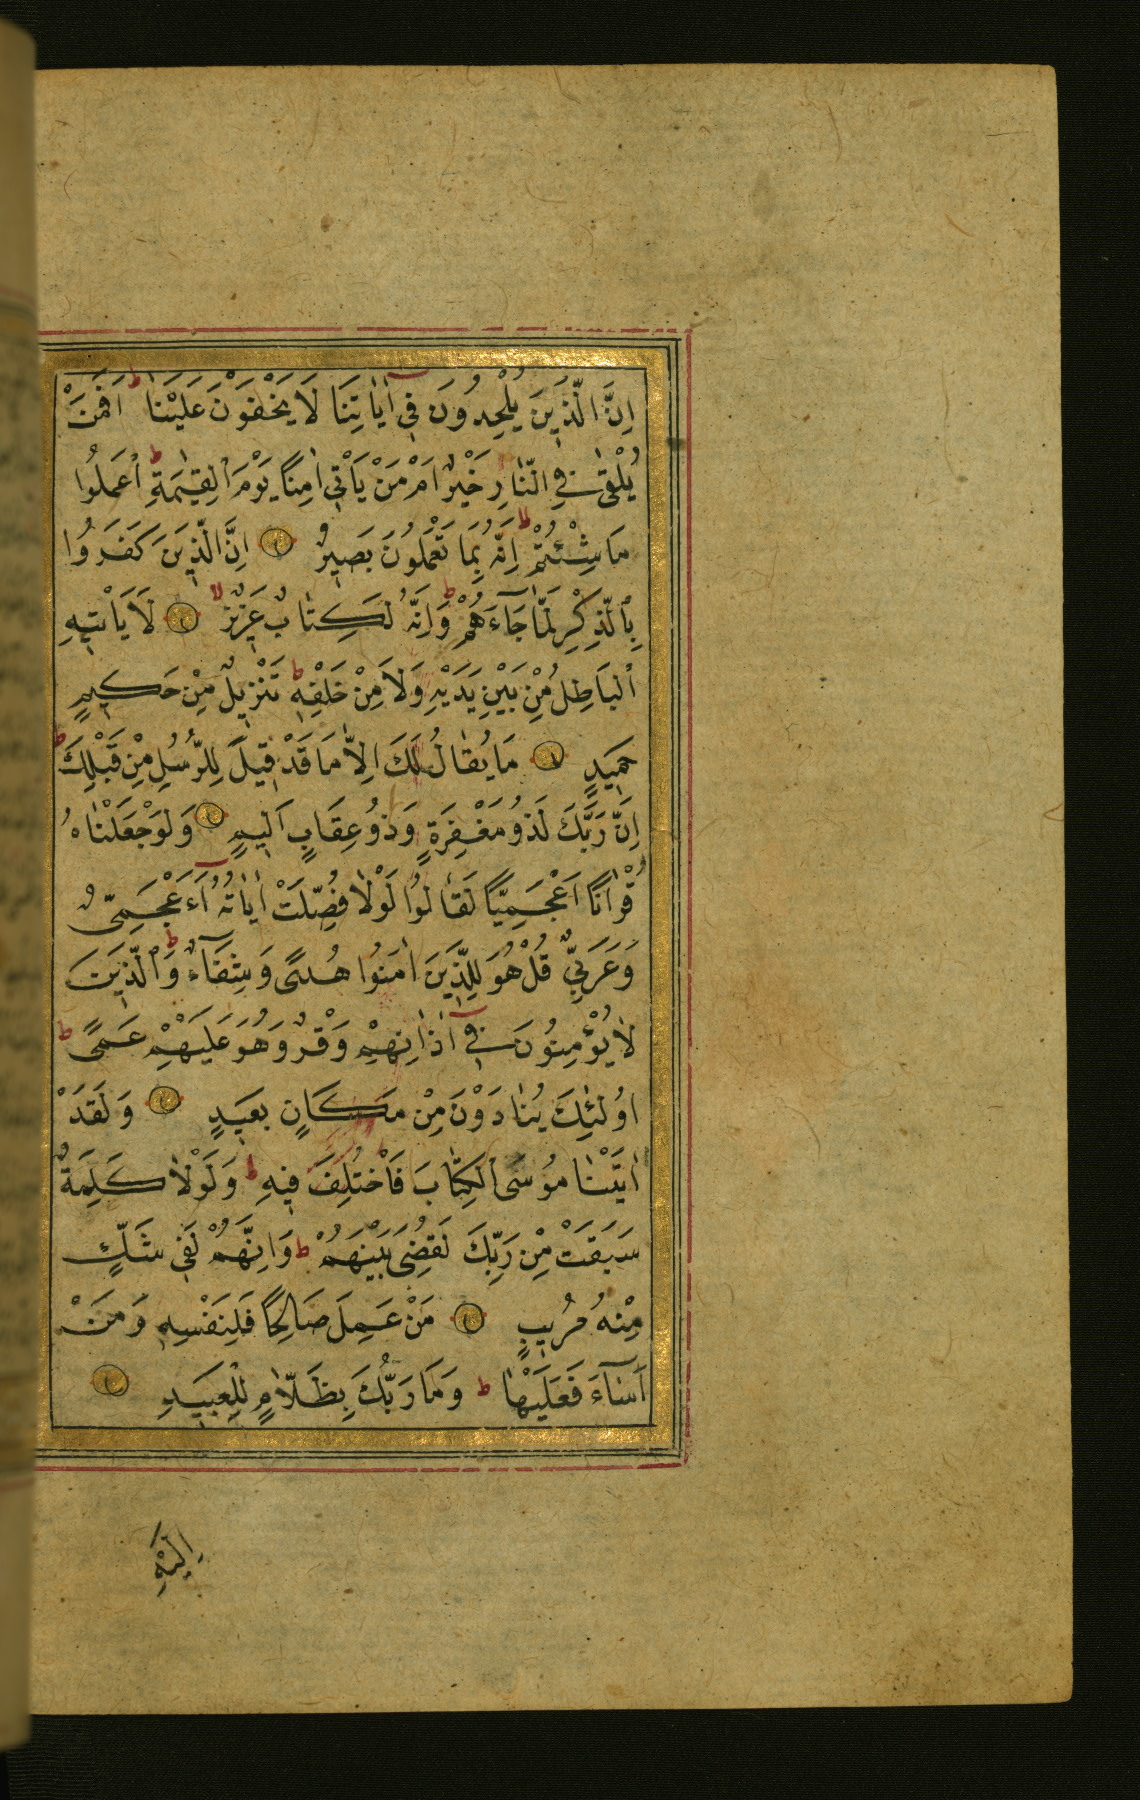 اِنَّ الَّذِينَ يُلْحِدُونَ فِي اٰيَاتِنَا لَا يَخْفَوْنَ عَلَيْنَا ط اَفَمَنْ
يُلْقٰى فِي النَّارِ خَيْرٌ اَمْ مَنْ يَأْتِي اٰمِنًا يَوْمَ الْقِيٰمَةِ ط اعْمَلُوا
مَا شِئْتُمْ لا اِنَّهُ بِمَا تَعْمَلُونَ بَصِيرٌ اِنَّ الَّذِينَ كَفَرُوا
بِالذِّكْرِ لَمَّا جَآءَهُمْ ط وَاِنَّهُ لَكِتَابٌ عَزِيزٌ لا لَا يَأْتِيهِ
الْبَاطِلُ مِنْ بَيْنِ يَدَيْهِ وَلَا مِنْ خَلْفِهِ ط تَنْزِيلٌ مِنْ حَكِيمٍ
حَمِيدٍ مَا يُقَالُ لَكَ اِلَّا مَا قَدْ قِيلَ لِلرُّسُلِ مِنْ قَبْلِكَ ط
اِنَّ رَبَّكَ لَذُو مَغْفِرَةٍ وَذُو عِقَابٍ اَلِيمٍ وَلَوْ جَعَلْنَاهُ
قُرْاٰنًا اَعْجَمِيًّا لَقَالُوا لَوْلَا فُصِّلَتْ اٰيَاتُهُ ءَاَعْجَمِيٌّ
وَعَرَبِيٌّ قُلْ هُوَ لِلَّذِينَ اٰمَنُوا هُدًى وَشِفَآءٌ ط وَالَّذِينَ
لَا يُؤْمِنُونَ فِي اٰذَانِهِمْ وَقْرٌ وَهُوَ عَلَيْهِمْ عَمًى ط
اُولٰئِكَ يُنَادَوْنَ مِنْ مَكَانٍ بَعِيدٍ وَلَقَدْ
اٰتَيْنَا مُوسَى الْكِتَابَ فَاخْتُلِفَ فِيهِ ط وَلَوْلَا كَلِمَةٌ
سَبَقَتْ مِنْ رَبِّكَ لَقُضِيَ بَيْنَهُمْ ط وَاِنَّهُمْ لَفِي شَكٍّ
مِنْهُ مُرِيبٍ مَنْ عَمِلَ صَالِحًا فَلِنَفْسِهِ وَمَنْ
اَسَآءَ فَعَلَيْهَا ط وَمَا رَبُّكَ بِظَلَّامٍ لِلْعَبِيدِ
اِلَيْهِ